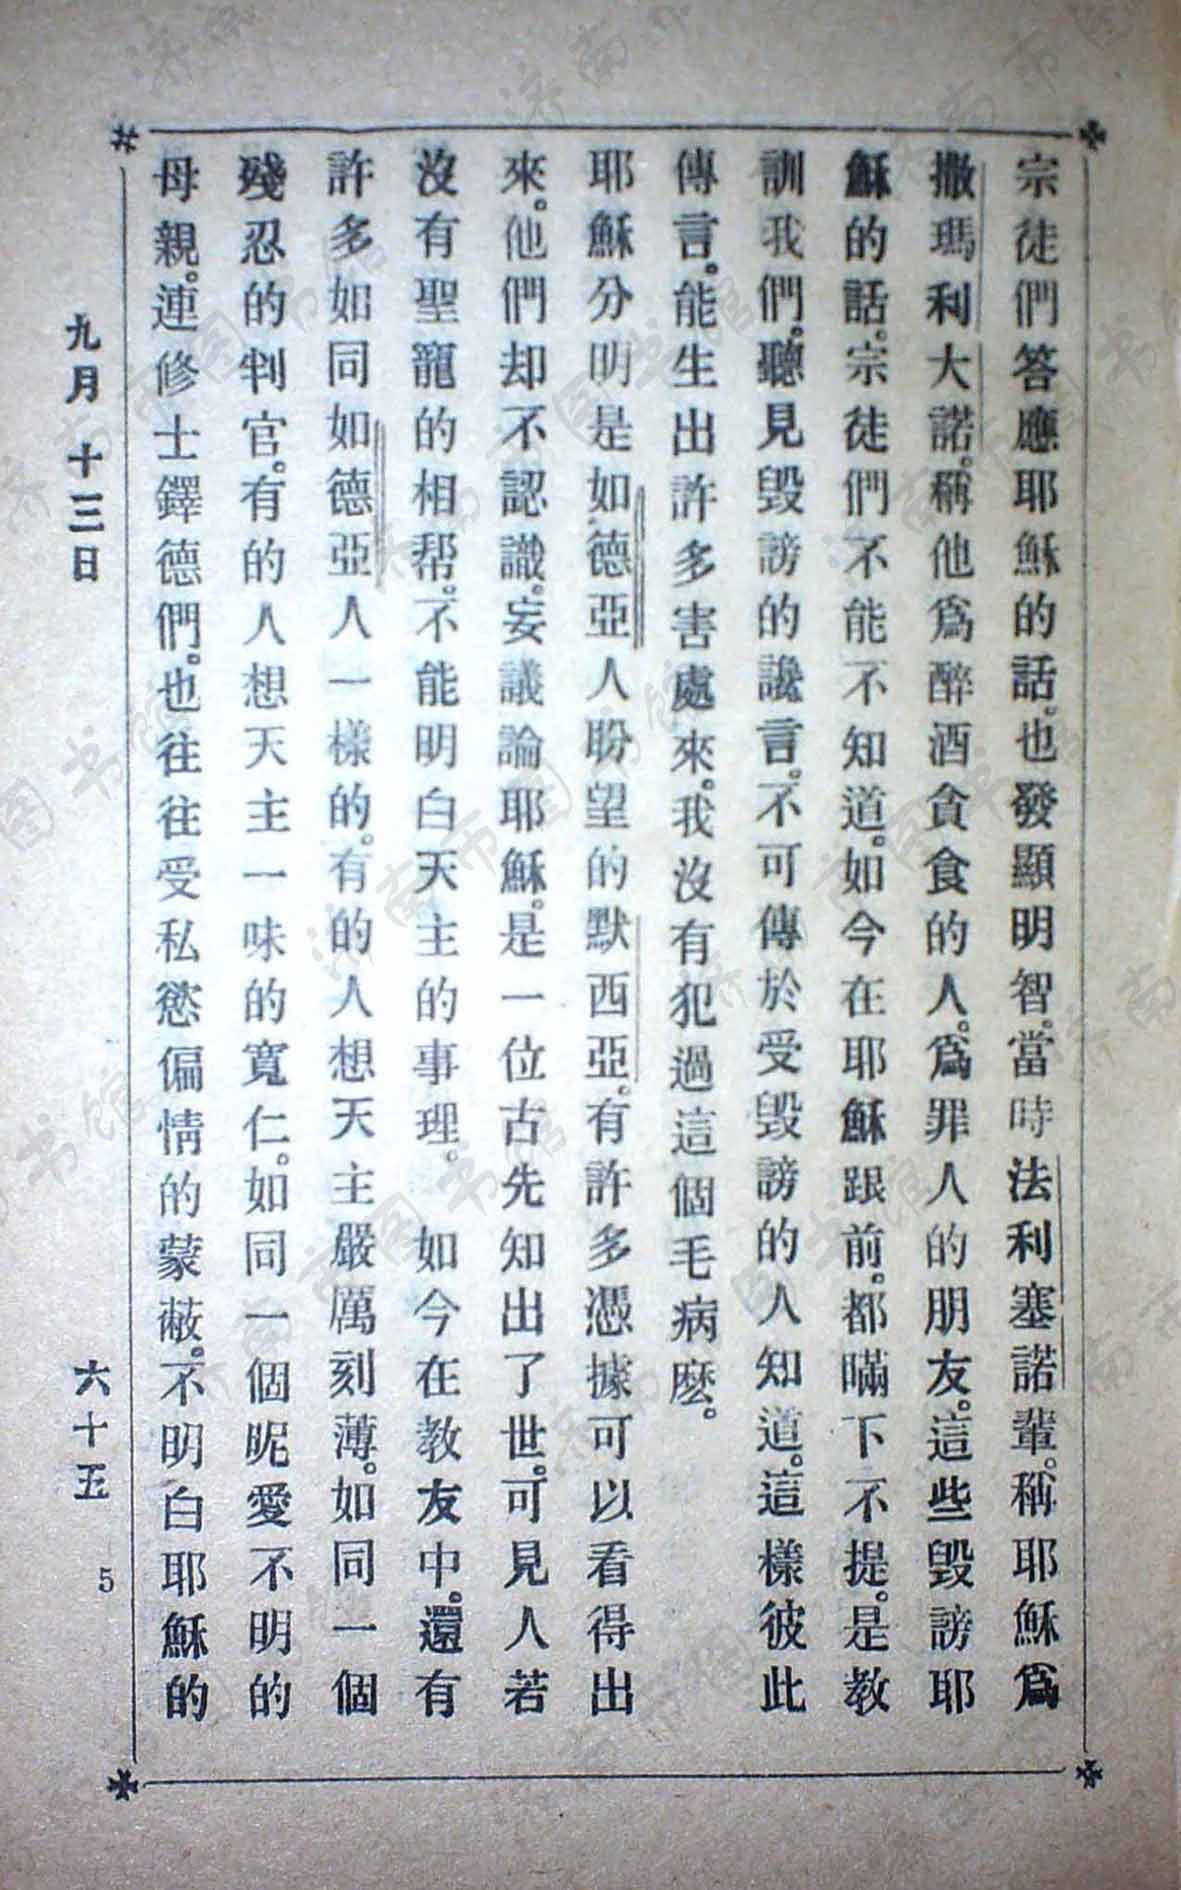 宗徒們答應耶穌的話。也發顯明智。當時法利塞諾輩。稱耶穌爲
撒瑪利大諾。稱他爲醉酒貪食的人。爲罪人的朋友。這些毀謗耶
穌的話。宗徒們不能不知道。如今在耶穌跟前。都瞞下不提。是教
訓我們。聽見毀謗的讒言。不可傳於受毀謗的人知道。這樣彼此
傳言。能生出許多害處來。我沒有犯過這個毛病麽。
耶穌分明是如德亞人盼望的默西亞。有許多憑據可以看得出
來。他們却不認識。妄議論耶穌。是一位古先知出了世。可見人若
沒有聖寵的相帮。不能明白天主的事理。 如今在教友中。還有
許多如同如德亞人一樣的。有的人想天主嚴厲刻薄。如同一個
殘忍的判官。有的人想天主一味的寬仁。如同一個昵愛不明的
母親。連修士鐸德們。也往往受私慾偏情的蒙蔽。不明白耶穌的
九月十三日
六十五
5
济南市图书馆